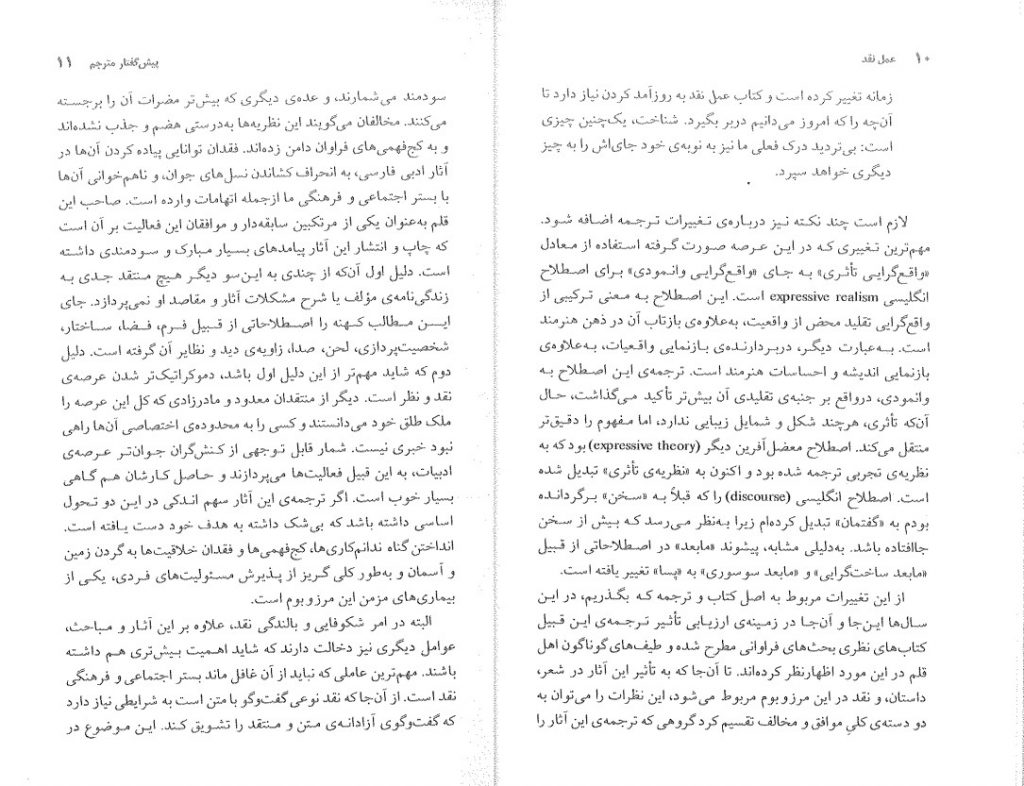 ۱۰ عمل نقد
زمانه تغییر کرده است و کتاب عمل نقد به روزآمد کردن نیاز دارد تا
آن‌چه را که امروز می‌دانیم دربر بگیرد. شناخت، یک‌چنین چیزی
است: بی‌تردید درک فعلی ما نیز به نوبه‌ی خود جای‌اش را به چیز
دیگری خواهد سپرد.
لازم است چند نکته نیز درباره‌ی تغییرات ترجمه اضافه شود.
مهم‌ترین تغییری که در این عرصه صورت گرفته استفاده از معادل
«واقع‌گرایی تأثری» به جای «واقع‌گرایی وانمودی» برای اصطلاح
انگلیسی expressive realism است. این اصطلاح به معنی ترکیبی از
واقع‌گرایی تقلید محض از واقعیت، به‌علاوه‌ی بازتاب آن در ذهن هنرمند
است. به‌عبارت دیگر، دربردارنده‌ی بازنمایی واقعیات، به‌علاوه‌ی
بازنمایی اندیشه و احساسات هنرمند است. ترجمه‌ی این اصطلاح به
وانمودی، درواقع بر جنبه‌ی تقلیدی آن بیش‌تر تأکید می‌گذاشت، حال
آن‌که تأثری، هرچند شکل و شمایل زیبایی ندارد، اما مفهوم را دقیق‌تر
منتقل می‌کند. اصطلاح معضل‌آفرین دیگر (expressive theory) بود که به
نظریه‌ی تجربی ترجمه شده بود و اکنون به «نظریه‌ی تأثری» تبدیل شده
است. اصطلاح انگلیسی (discourse) را که قبلاً به «سخن» برگردانده
بودم به «گفتمان» تبدیل کرده‌ام زیرا به‌نظر می‌رسد که بیش از سخن
جاافتاده باشد. به‌دلیلی مشابه، پیشوند «مابعد» در اصطلاحاتی از قبیل
«مابعد ساخت‌گرایی» و «مابعد سوسوری» به «پسا» تغییر یافته است.
از این تغییرات مربوط به اصل کتاب و ترجمه که بگذریم، در این
سال‌ها این‌جا و آن‌جا در زمینه‌ی ارزیابی تأثیر ترجمه‌ی این قبیل
کتاب‌های نظری بحث‌های فراوانی مطرح شده و طیف‌های گوناگون اهل
قلم در این مورد اظهارنظر کرده‌اند. تا آن‌جا که به تأثیر این آثار در شعر،
داستان، و نقد در این مرزوبوم مربوط می‌شود، این نظرات را می‌توان به
دو دسته‌ی کلیِ موافق و مخالف تقسیم کرد گروهی که ترجمه‌ی این آثار را
پیش‌گفتار مترجم ۱۱
سودمند می‌شمارند، و عده‌ی دیگری که بیش‌تر مضرات آن را برجسته
می‌کنند. مخالفان می‌گویند این نظریه‌ها به‌درستی هضم و جذب نشده‌اند
و به کج‌فهمی‌های فراوان دامن زده‌اند. فقدان توانایی پیاده کردن آن‌ها در
آثار ادبی فارسی، به انحراف کشاندن نسل‌های جوان، و ناهم‌خوانی آن‌ها
با بستر اجتماعی و فرهنگی ما ازجمله اتهامات وارده است. صاحب این
قلم به‌عنوان یکی از مرتکبین سابقه‌دار و موافقان این فعالیت بر آن است
که چاپ و انتشار این آثار پیامدهای بسیار مبارک و سودمندی داشته
است. دلیل اول آن‌که از چندی به این‌سو دیگر هیچ منتقد جدی به
زندگی‌نامه‌ی مؤلف یا شرح مشکلات آثار و مقاصد او نمی‌پردازد. جای
این مطالب کهنه را اصطلاحاتی از قبیل فرم، فضا، ساختار،
شخصیت‌پردازی، لحن، صدا، زاویه‌ی دید و نظایر آن گرفته است. دلیل
دوم که شاید مهم‌تر از این دلیل اول باشد، دموکراتیک‌تر شدن عرصه‌ی
نقد و نظر است. دیگر از منتقدان معدود و مادرزادی که کل این عرصه را
ملک طلق خود می‌دانستند و کسی را به محدوده‌ی اختصاصی آن‌ها راهی
نبود خبری نیست. شمار قابل توجهی از کنش‌گران جوان‌تر عرصه‌ی
ادبیات، به این قبیل فعالیت‌ها می‌پردازند و حاصل کارشان هم گاهی
بسیار خوب است. اگر ترجمه‌ی این آثار سهم اندکی در این دو تحول
اساسی داشته باشد که بی‌شک داشته به هدف خود دست یافته است.
انداختن گناه ندانم‌کاری‌ها، کج‌فهمی‌ها و فقدان خلاقیت‌ها به گردن زمین
و آسمان و به‌طور کلی گریز از پذیرش مسئولیت‌های فردی، یکی از
بیماری‌های مزمن این مرزوبوم است.
البته در امر شکوفایی و بالندگی نقد، علاوه بر این آثار و مباحث،
عوامل دیگری نیز دخالت دارند که شاید اهمیت بیش‌تری هم داشته
باشند. مهم‌ترین عاملی که نباید از آن غافل ماند بستر اجتماعی و فرهنگی
نقد است. از آن‌جا که نقد نوعی گفت‌وگو با متن است به شرایطی نیاز دارد
که گفت‌وگوی آزادانه‌ی متن و منتقد را تشویق کند. این موضوع در